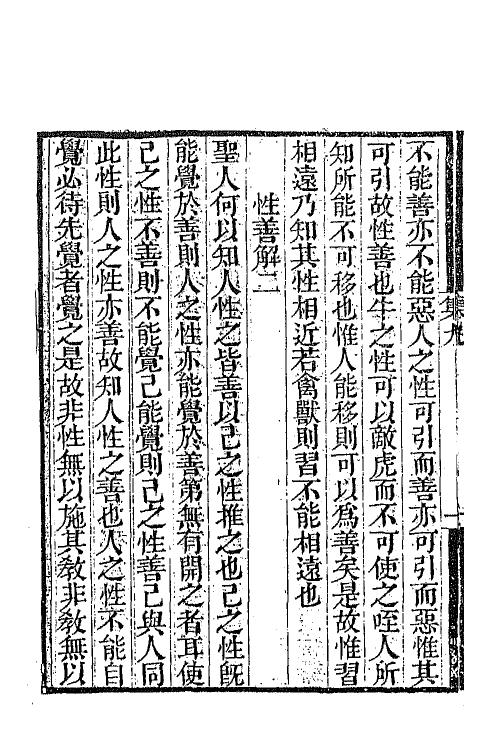 不能善亦不能惡人之性可引而善亦可引而惡惟其
可引故性善也牛之性可以敵虎而不可使之咥人所
知所能不可移也惟人能移則可以為善矣是故惟習
相遠乃知其性相近若禽獸則習不能相遠也
性善解二
聖人何以知人性之皆善以己之性推之也己之性旣
能覺於善則人之性亦能覺於善第無有開之者耳使
己之性不善則不能覺己能覺則己之性善己與人同
此性則人之性亦善故知人性之善也人之性不能自
覺必待先覺者覺之是故非性無以施其敎非敎無以
集九
一